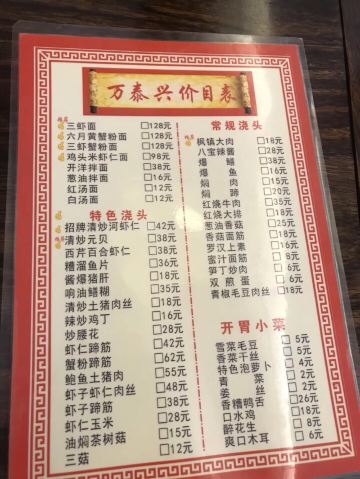 万泰兴价目表
三虾面 □128元
六月黄蟹粉面 □128元
三虾蟹粉面 □128元
鸡头米虾仁面 □98元
开洋拌面 □38元
葱油拌面 □16元
红汤面 □12元
白汤面 □12元
特色浇头
招牌清炒河虾仁 □42元
清炒元贝 □38元
西芹百合虾仁 □38元
糟溜鱼片 □36元
酱爆猪肝 □18元
响油鳝糊 □35元
清炒土猪肉丝 □18元
辣炒鸡丁 □16元
炒腰花 □28元
虾仁蹄筋 □42元
蟹粉蹄筋 □62元
鲍鱼土猪肉 □55元
虾子虾仁肉丝 □48元
虾子蹄筋 □38元
虾仁玉米 □28元
油焖茶树菇 □15元
三菇 □12元
常规浇头
枫镇大肉 □18元
八宝辣酱 □28元
爆鳝 □38元
爆鱼
焖肉
焖蹄 □20元
红烧牛肉 □35元
红烧大排 □18元
葱油香菇 □25元
香菇面筋
罗汉上素
蜜汁面筋 □8元
笋丁炒肉
双煎蛋 □6元
青椒毛豆肉丝 □18元
开胃小菜
雪菜毛豆 □5元
香菜干丝 □5元
特色泡萝卜 □5元
青菜 □6元
姜丝 □2元
香糟鸭舌 □28元
口水鸡 □18元
醉花生 □8元
爽口木耳 □6元